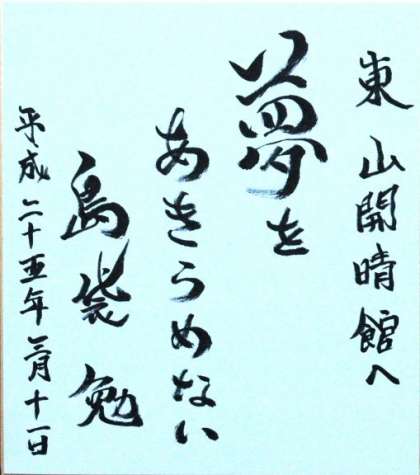 東山開晴館へ
夢を
あきらめない
島袋勉
平成二十五年三月十一日